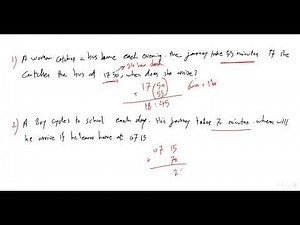 1) A woman catches a bus home each evening. the journey takes 55 minutes. If she
24 hour clock
Catches the bus at 1750, when does she arrive?
17 50 60m = 1hr
+ 55
18:45
2) A Boy cycles to school each day. His journey takes 70 minutes. when will
he arrive if he leaves home at 0715
07 15
+ 70
2